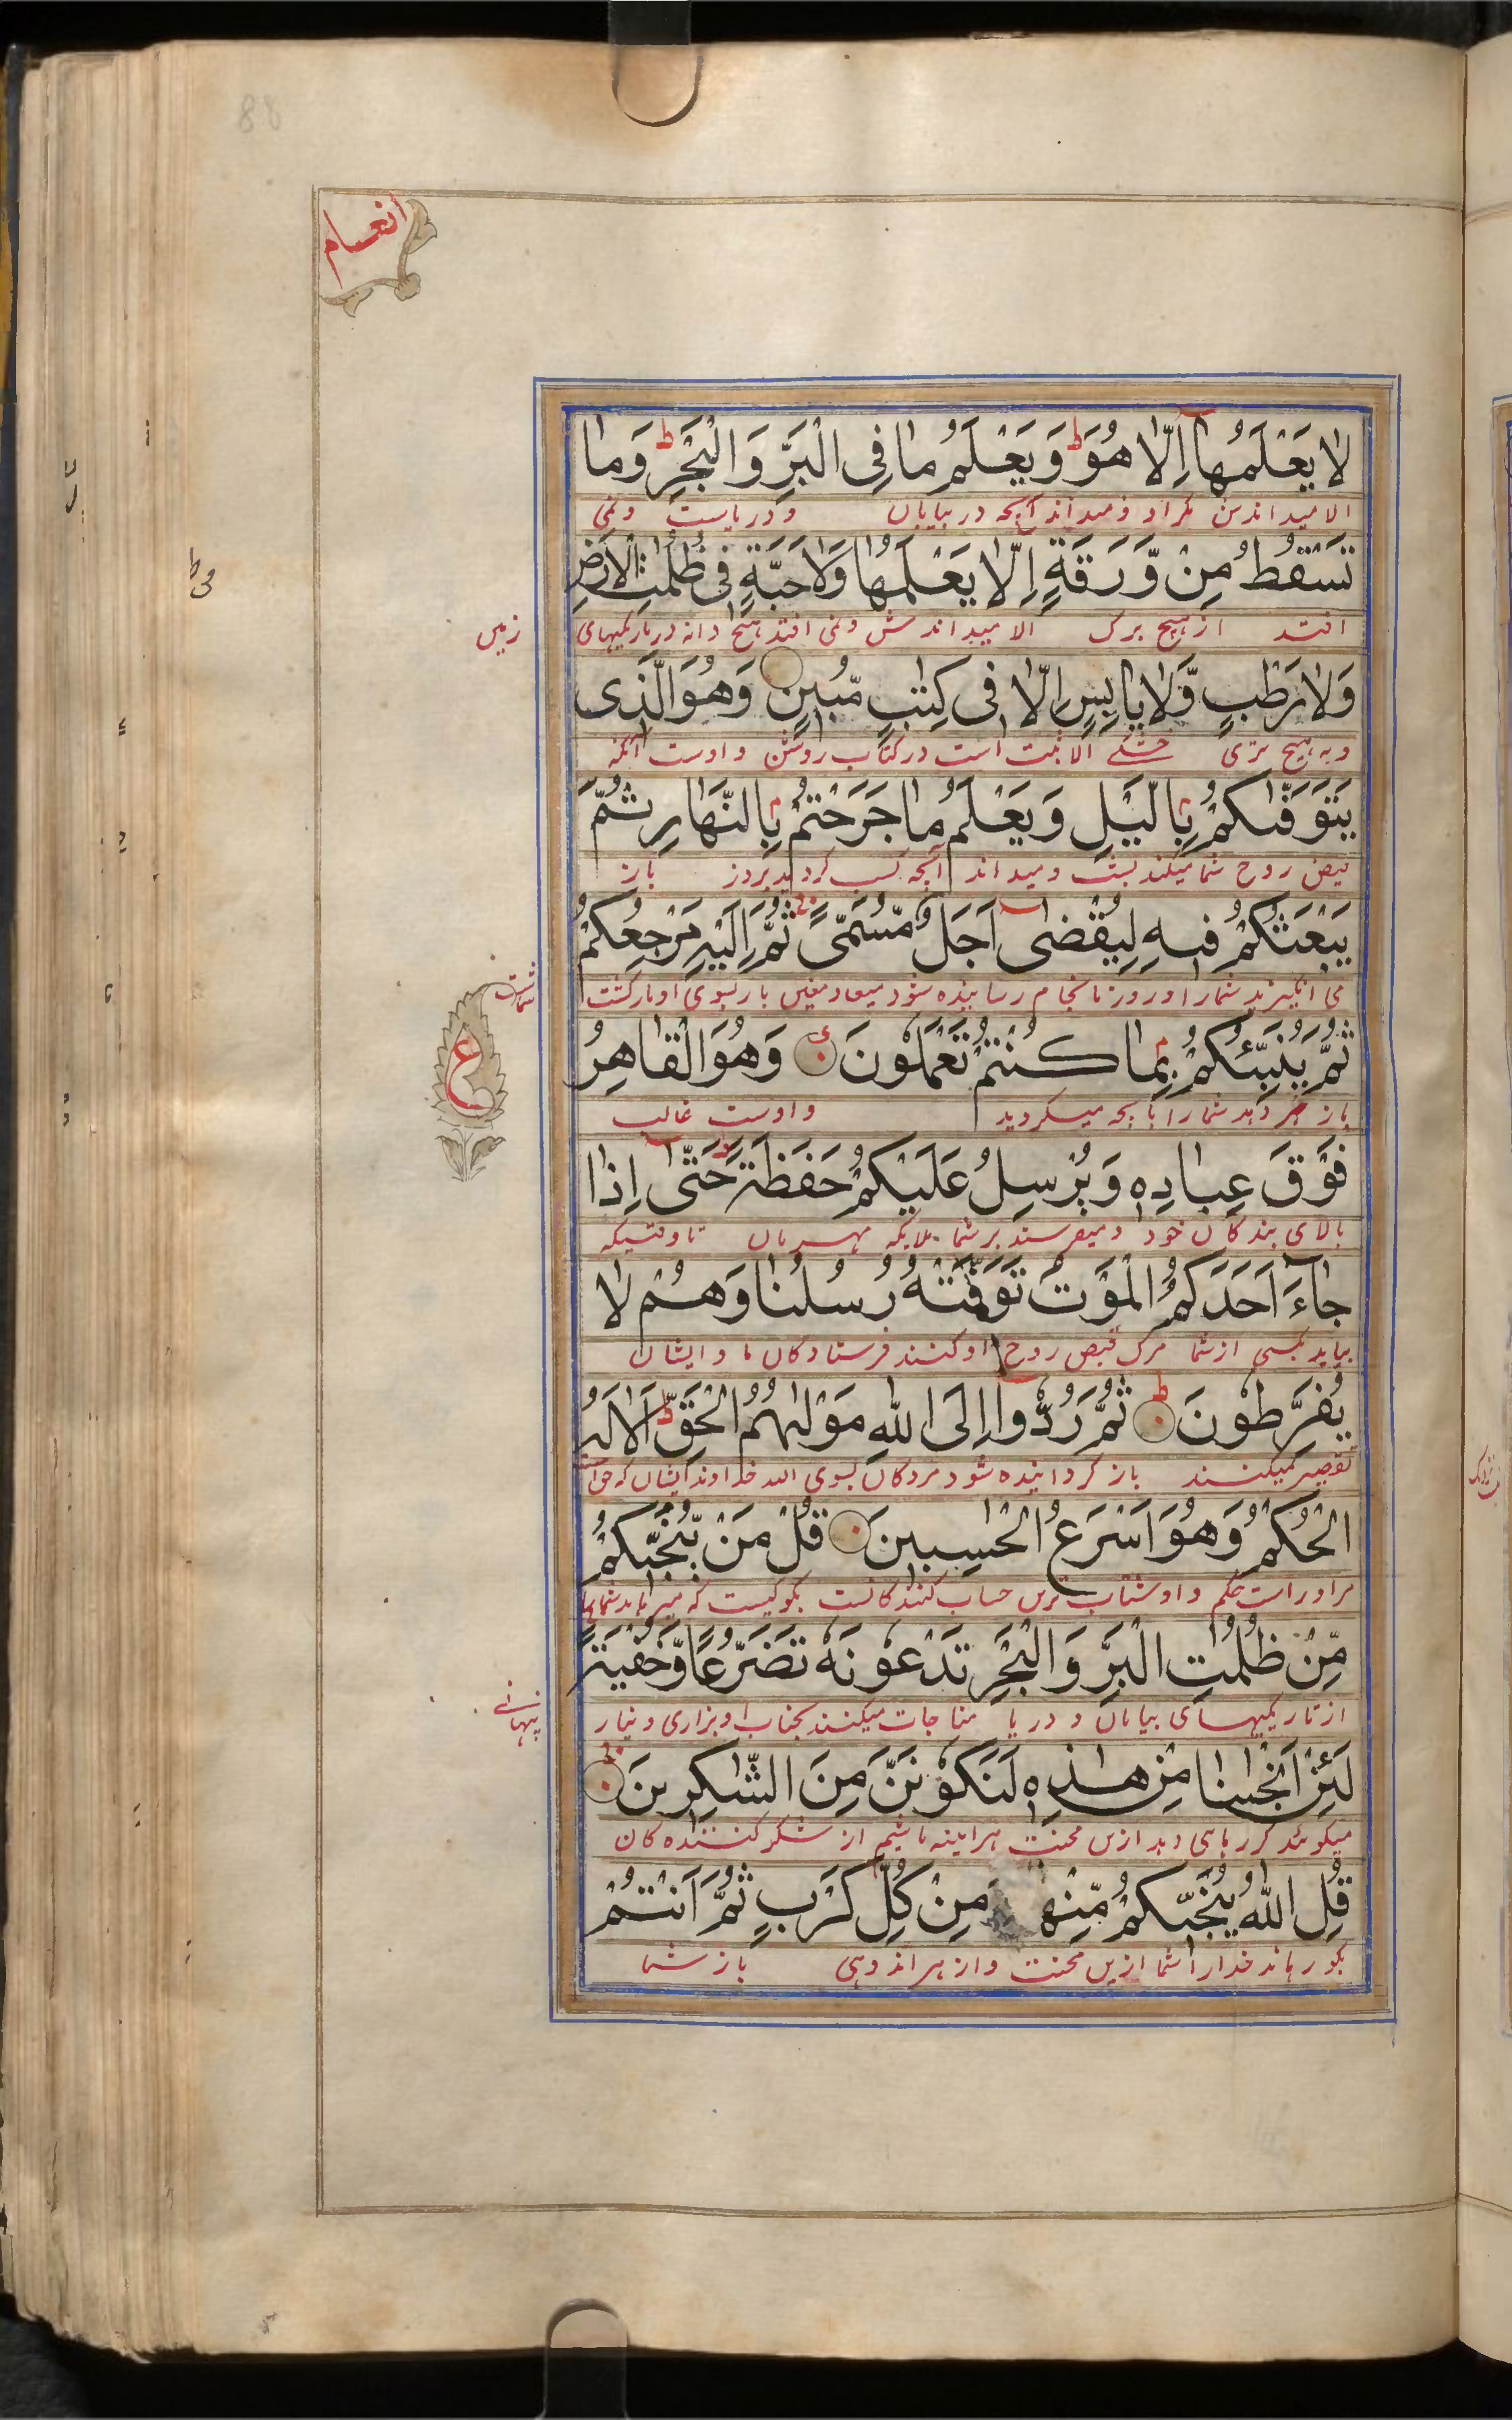 88
انعام
لا یَعْلَمُها اِلّا هُوَ ط وَ یَعْلَمُ ما فِی الْبَرِّ وَ الْبَحْرِ ط وَ ما
الا میداندش مگر او و میداند آنچه در بیابان و دریاست و نمی
تَسْقُطُ مِنْ وَّرَقَةٍ اِلّا یَعْلَمُها وَلا حَبَّةٍ فی ظُلُمٰتِ الْاَرْضِ
افتد از هیچ برک الا میداندش و نمی افتد هیچ دانه در تاریکیهای
زمین
وَلا رَطْبٍ وَّلا یابِسٍ اِلّا فی کِتٰبٍ مُّبینٍ وَهُوَ الَّذی
و نه هیچ تری خشکے الا ثبت است در کتاب روشن و اوست آنکه
یَتَوَفّٰکُمْ بِالَّیْلِ وَ یَعْلَمُ ما جَرَحْتُمْ بِالنَّهارِ ثُمَّ
قبض روح شما میکند بشب و میداند آنچه کسب کردید بروز باز
یَبْعَثُکُمْ فیهِ لِیُقْضٰی اَجَلٌ مُّسَمًّی ج ثُمَّ اِلَیْهِ مَرْجِعُکُمْ
می انگیزند شما را در روز تا بانجام رسانیده شود میعاد معین باز بسوی او بازگشت
شماست
ثُمَّ یُنَبِّئُکُمْ بِما کُنْتُمْ تَعْمَلُونَ وَهُوَ الْقاهِرُ
ع
باز خبر دهد شما را بآنچه میکردید و اوست غالب
فَوْقَ عِبادِهٖ وَ یُرْسِلُ عَلَیْکُمْ حَفَظَةً حَتّٰی اِذا
بالای بندکان خود و میفرستد بر شما ملایکه تا وقتیکه
جاءَ اَحَدَکُمُ الْمَوْتُ تَوَفَّتْهُ رُسُلُنا وَهُمْ لا
بیاید بکسی از شما مرک قبض روح او کنند فرستادکان ما و ایشان
یُفَرِّطُونَ ط ثُمَّ رُدُّوا اِلَی اللهِ مَوْلٰهُمُ الْحَقِّ ط اَلا لَهُ
تقصیر نمیکنند باز کردانیده شود مردکان بسوی الله خداوند ایشان که حق است
الْحُکْمُ وَهُوَ اَسْرَعُ الْحٰسِبینَ قُلْ مَنْ یُّنَجّیکُمْ
مر او راست حکم و او شتاب ترین حساب کنندکانست بکو کیست که میرهاند شما را
مِّنْ ظُلُمٰتِ الْبَرِّ وَ الْبَحْرِ تَدْعُونَهٗ تَضَرُّعًا وَّخُفْیَةً
از تاریکیهای بیابان و دریا مناجات میکنند بجناب او بزاری و نیاز
پنهانے
لَئِنْ اَنْجٰنا مِنْ هٰذِهٖ لَنَکُونَنَّ مِنَ الشّٰکِرینَ
میکویند کر رهایی دهد ازین محنت هر اینه باشیم از شکر کننده کان
قُلِ اللهُ یُنَجّیکُمْ مِّنْها مِنْ کُلِّ کَرْبٍ ثُمَّ اَنْتُمْ
بکو رهاند خدا شما را ازین محنت و از هر اندوهی باز شما